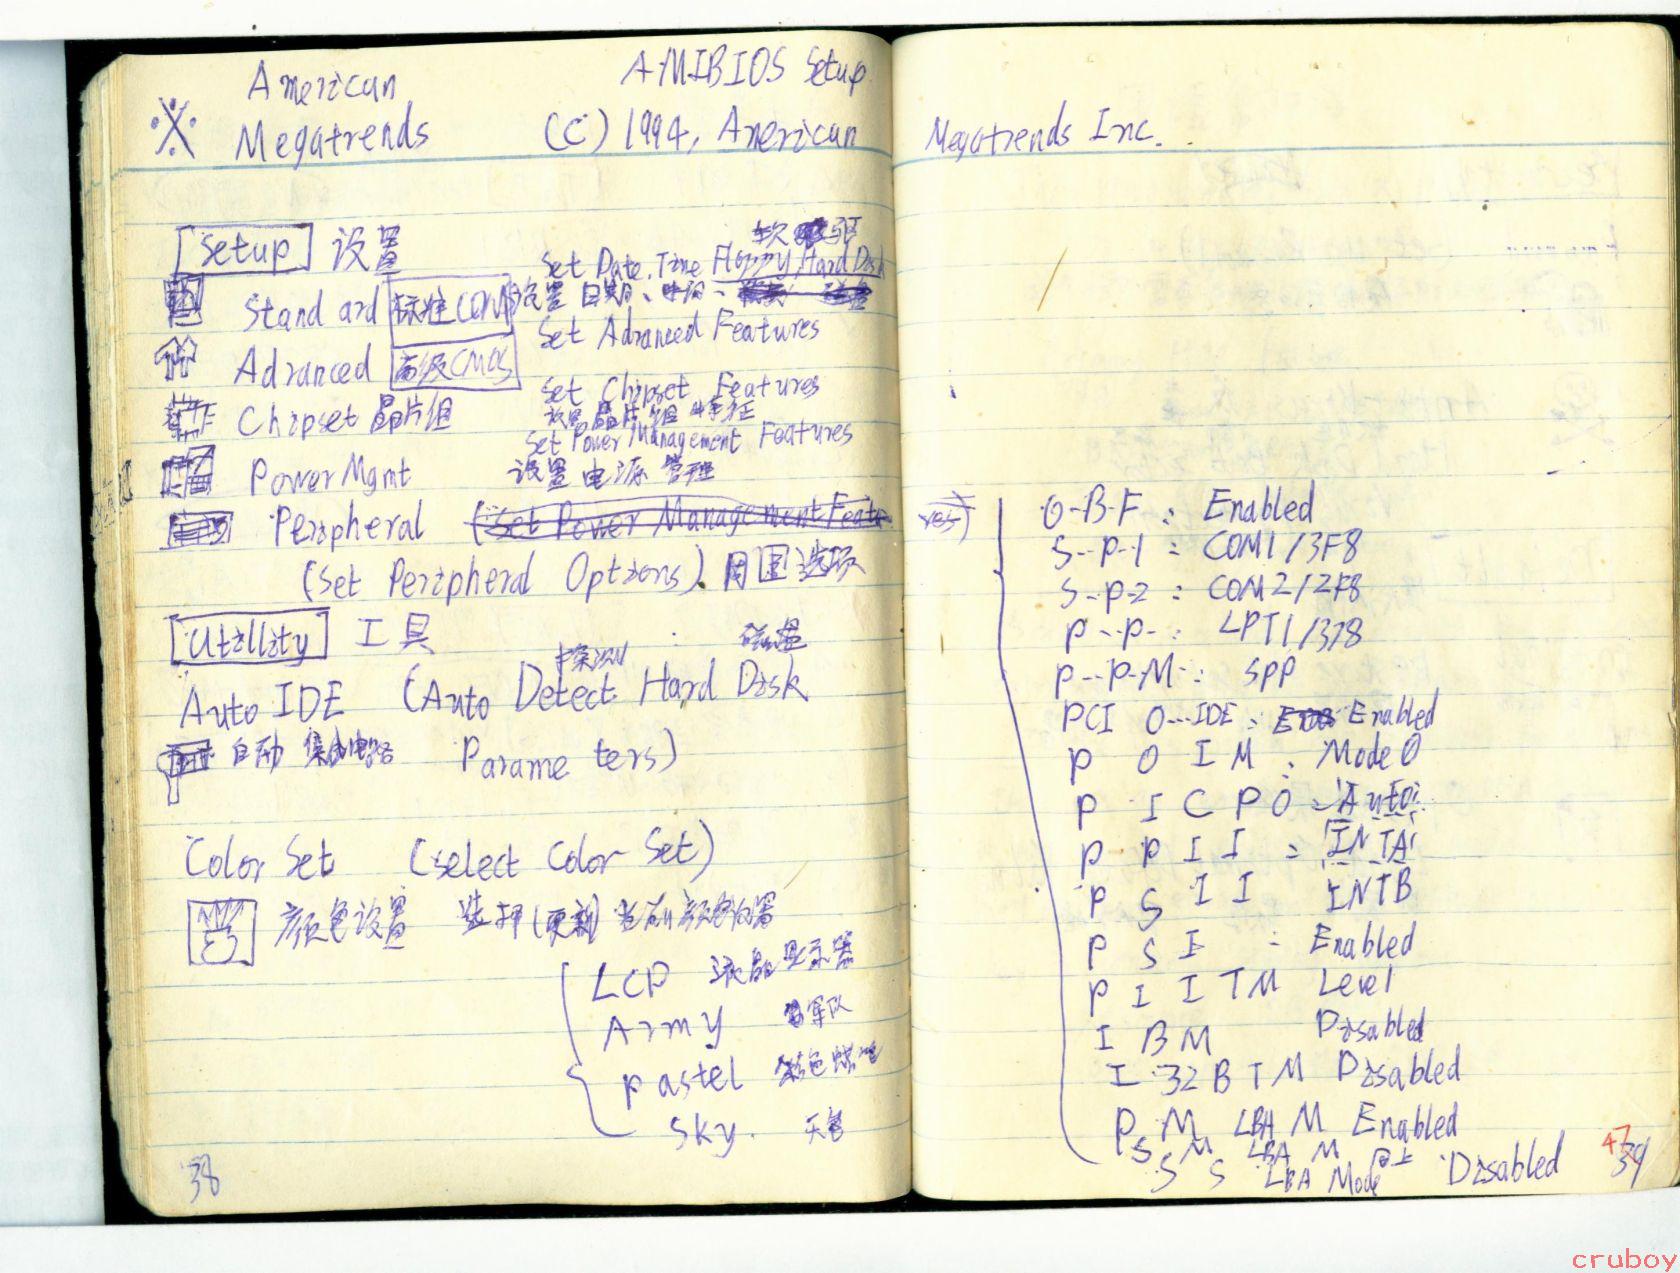 American
AMIBIOS Setup
Megatrends
(C) 1994, American
Megatrends Inc.
Setup 设置
软 驱
Set Date, Time Floppy, Hard Disk
Standard 标准COM
设置 日期、时间、
Set Advanced Features
Advanced 高级CMOS
Set Chipset Features
Chipset 晶片组
设置晶片组特征
Set Power Management Features
PowerMgmt
设置电源管理
Peripheral (Set Power Management Featu
res)
(Set Peripheral Options) 周围选项
Utillity 工具
探测 磁盘
Auto IDE (Auto Detect Hard Disk
自动 集成电路 Parameters)
Color Set (Select Color Set)
颜色设置 选择(更新)当前颜色设置
LCP 液晶显示器
Army 军队
Pastel
Sky. 天色
38
O-B-F : Enabled
S--P-1 : COM1/3F8
S--P-2 : COM2/2F8
P--P- : LPT1/378
P--P-M- : SPP
PCI O---IDE : Enabled
P O I M : Mode 0
P I C P O : Auto
P P I I : INTA
P S I I INTB
P S I : Enabled
P I I T M Level
I B M Disabled
I 32 B T M Disabled
P M LBA M Enabled
S M LBA M 同上
S S LBA Mode Disabled
47
39
cruboy